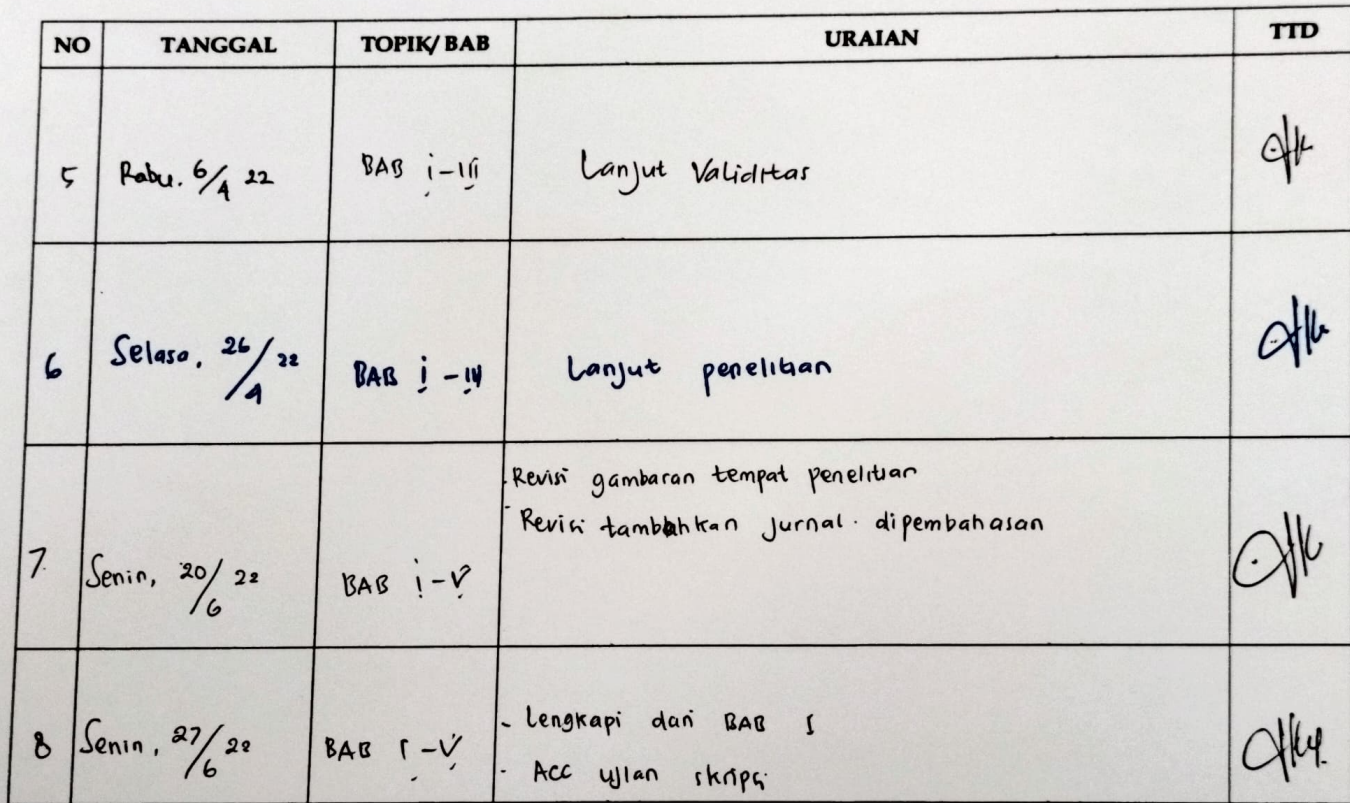 NO TANGGAL TOPIK/ BAB URAIAN TTD
5 Rabu. 6/4 22 BAB i-III Lanjut Validitas
6 Selasa, 26/4 22 BAB i-IV Lanjut penelitian
- Revisi gambaran tempat penelitian
- Revisi tambahkan Jurnal. dipembahasan
7. Senin, 20/6 22 BAB i-V
- Lengkapi dari BAB I
8 Senin, 27/6 22 BAB I-V
- Acc ujian skripsi